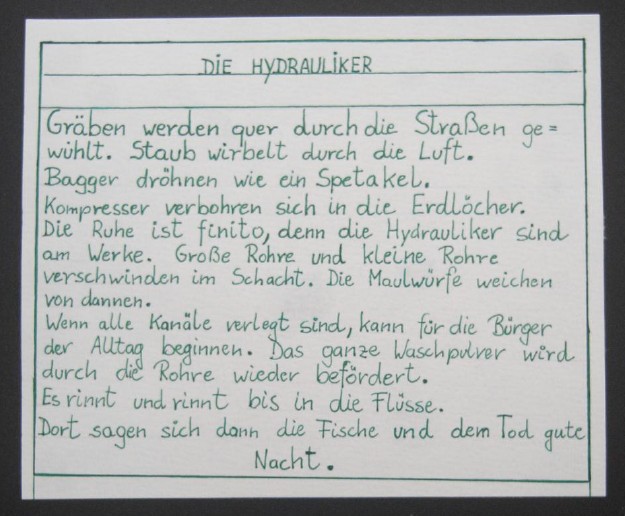 DIE HYDRAULIKER
Gräben werden quer durch die Straßen ge=
wühlt. Staub wirbelt durch die Luft.
Bagger dröhnen wie ein Spetakel.
Kompresser verbohren sich in die Erdlöcher.
Die Ruhe ist finito, denn die Hydrauliker sind
am Werke. Große Rohre und kleine Rohre
verschwinden im Schacht. Die Maulwürfe weichen
von dannen.
Wenn alle Kanäle verlegt sind, kann für die Bürger
der Alltag beginnen. Das ganze Waschpulver wird
durch die Rohre wieder befördert.
Es rinnt und rinnt bis in die Flüsse.
Dort sagen sich dann die Fische und dem Tod gute
Nacht.